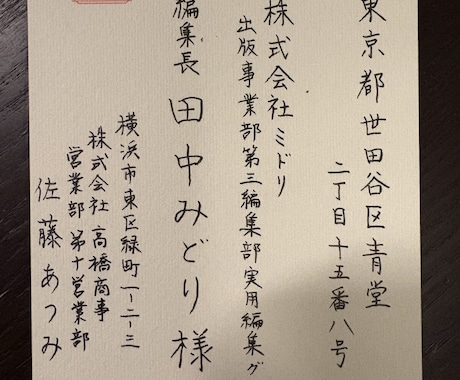 東京都世田谷区青堂
二丁目十五番八号
株式会社ミドリ
出版事業部第三編集部実用編集グ
編集長 田中みどり様
横浜市東区緑町一ー二ー三
株式会社 高橋商事
営業部 第十営業部
佐藤あつみ